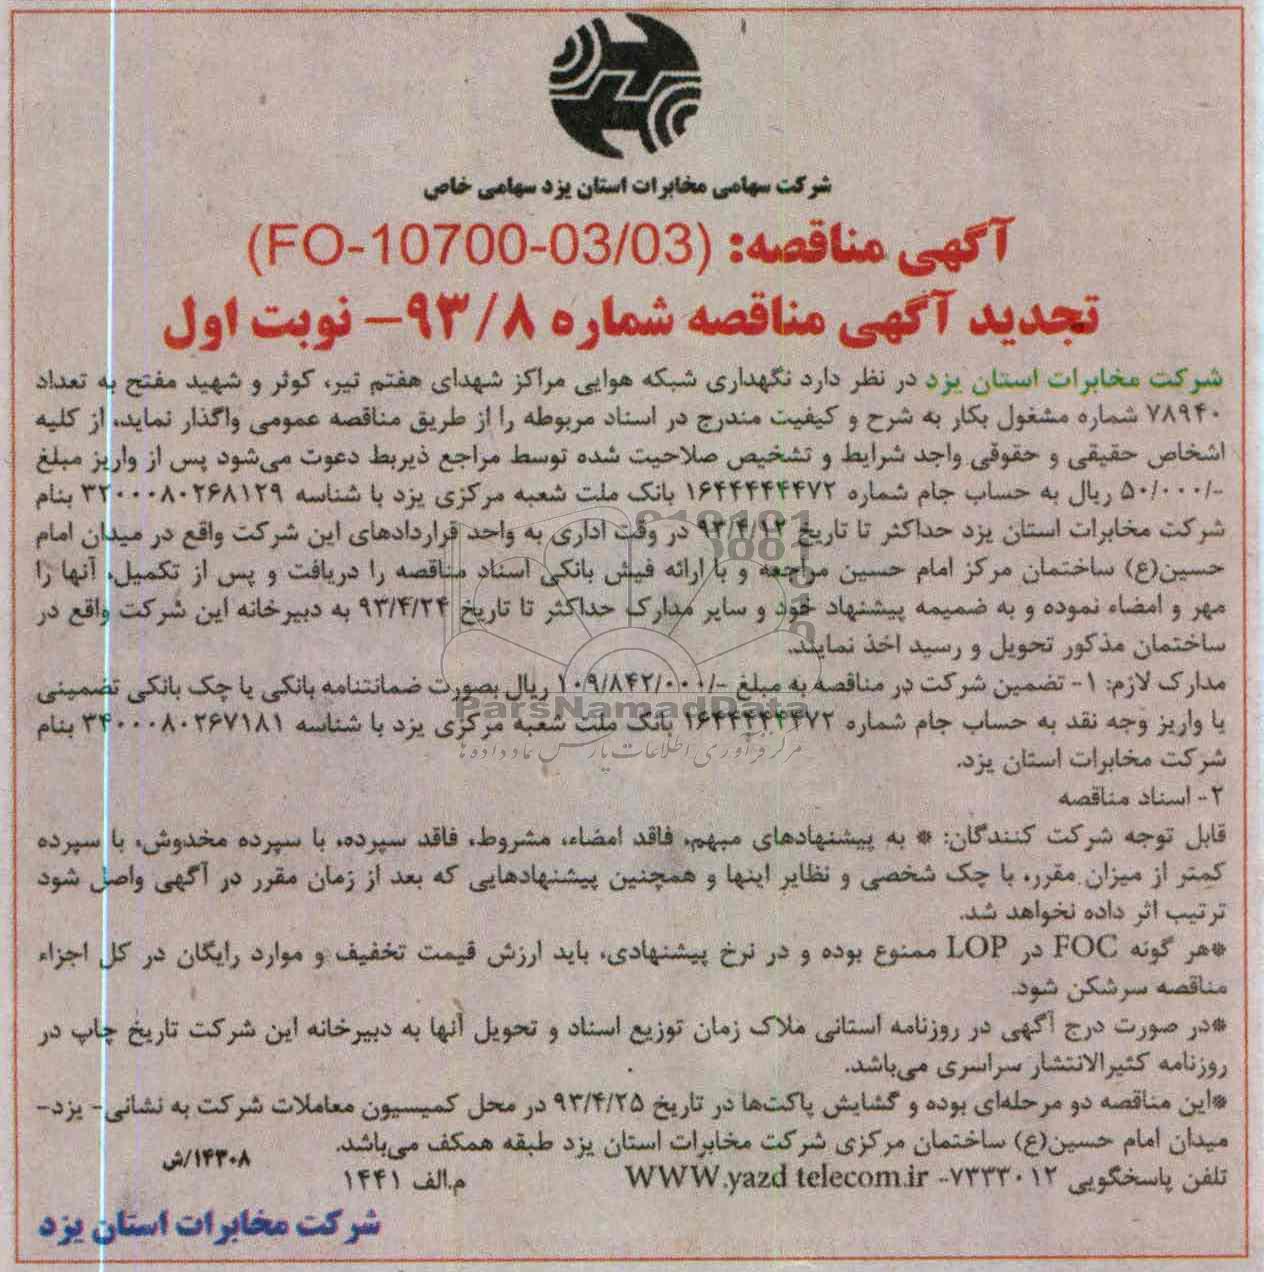 شرکت سهامی مخابرات استان یزد سهامی خاص
آگهی مناقصه: (FO-10700-03/03)
تجدید آگهی مناقصه شماره ۹۳/۸- نوبت اول
شرکت مخابرات استان یزد در نظر دارد نگهداری شبکه هوایی مراکز شهدای هفتم تیر، کوثر و شهید مفتح به تعداد
۷۸۹۴۰ شماره مشغول بکار به شرح و کیفیت مندرج در اسناد مربوطه را از طریق مناقصه عمومی واگذار نماید، از کلیه
اشخاص حقیقی و حقوقی واجد شرایط و تشخیص صلاحیت شده توسط مراجع ذیربط دعوت می‌شود پس از واریز مبلغ
-/۵۰/۰۰۰ ریال به حساب جام شماره ۱۶۴۴۴۴۴۴۷۲ بانک ملت شعبه مرکزی یزد با شناسه ۳۲۰۰۰۸۰۲۶۸۱۲۹ بنام
شرکت مخابرات استان یزد حداکثر تا تاریخ ۹۳/۴/۱۲ در وقت اداری به واحد قراردادهای این شرکت واقع در میدان امام
حسین(ع) ساختمان مرکز امام حسین مراجعه و با ارائه فیش بانکی اسناد مناقصه را دریافت و پس از تکمیل، آنها را
مهر و امضاء نموده و به ضمیمه پیشنهاد خود و سایر مدارک حداکثر تا تاریخ ۹۳/۴/۲۴ به دبیرخانه این شرکت واقع در
ساختمان مذکور تحویل و رسید اخذ نمایند.
مدارک لازم: ۱- تضمین شرکت در مناقصه به مبلغ -/۱۰۹/۸۴۲/۰۰۰ ریال بصورت ضمانتنامه بانکی یا چک بانکی تضمینی
ParsNamadData
یا واریز وجه نقد به حساب جام شماره ۱۶۴۴۴۴۴۴۷۲ بانک ملت شعبه مرکزی یزد با شناسه ۳۴۰۰۰۸۰۲۶۷۱۸۱ بنام
مرکز فرآوری اطلاعات پارس نماد داده ها
شرکت مخابرات استان یزد.
۲- اسناد مناقصه
قابل توجه شرکت کنندگان: * به پیشنهادهای مبهم، فاقد امضاء، مشروط، فاقد سپرده، با سپرده مخدوش، با سپرده
کمتر از میزان مقرر، با چک شخصی و نظایر اینها و همچنین پیشنهادهایی که بعد از زمان مقرر در آگهی واصل شود
ترتیب اثر داده نخواهد شد.
*هر گونه FOC در LOP ممنوع بوده و در نرخ پیشنهادی، باید ارزش قیمت تخفیف و موارد رایگان در کل اجزاء
مناقصه سرشکن شود.
*در صورت درج آگهی در روزنامه استانی ملاک زمان توزیع اسناد و تحویل آنها به دبیرخانه این شرکت تاریخ چاپ در
روزنامه کثیرالانتشار سراسری می‌باشد.
*این مناقصه دو مرحله‌ای بوده و گشایش پاکت‌ها در تاریخ ۹۳/۴/۲۵ در محل کمیسیون معاملات شرکت به نشانی- یزد-
میدان امام حسین(ع) ساختمان مرکزی شرکت مخابرات استان یزد طبقه همکف می‌باشد.
۱۴۳۰۸/ش
تلفن پاسخگویی ۷۳۳۳۰۱۲- WWW.yazd telecom.ir
م.الف ۱۴۴۱
شرکت مخابرات استان یزد